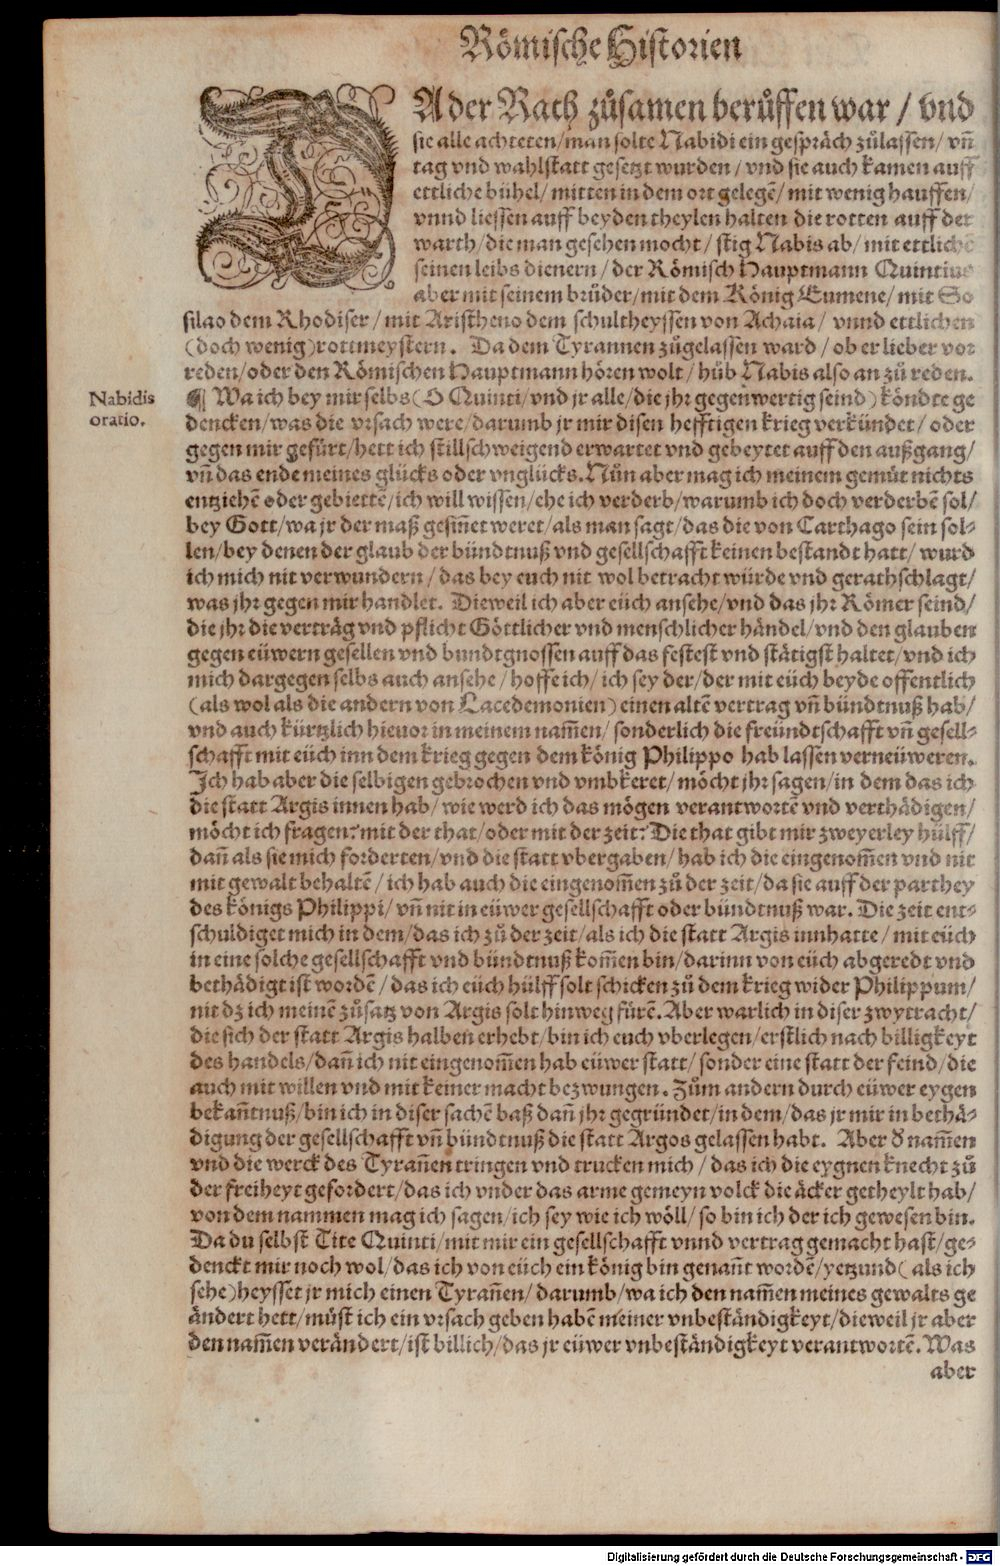 Römische Historien
DA der Rath zůsamen berůffen war / vnd
sie alle achteten/man solte Nabidi ein gespräch zůlassen/ vn̄
tag vnd wahlstatt gesetzt wurden / vnd sie auch kamen auff
ettliche bühel/ mitten in dem ort gelegē/ mit wenig hauffen/
vnnd liessen auff beyden theylen halten die rotten auff der
warth/ die man gesehen mocht/ stig Nabis ab/ mit ettlichē
seinen leibs dienern / der Römisch Hauptmann Quintius
aber mit seinem brůder/ mit dem König Eumene/ mit So
silao dem Rhodiser / mit Aristheno dem schultheyssen von Achaia/ vnnd ettlichen
(doch wenig) rottmeystern. Da dem Tyrannen zůgelassen ward / ob er lieber vor
reden/oder den Römischen Hauptmann hören wolt/ hůb Nabis also an zů reden.
Nabidis
oratio.
¶ Wa ich bey mir selbs (O Quinti/ vnd jr alle/ die jhr gegenwertig seind) köndte ge
dencken/ was die vrsach were/ darumb jr mir disen hefftigen krieg verkündet/ oder
gegen mir gefürt/ hett ich stillschweigend erwartet vnd gebeytet auff den außgang/
vn̄ das ende meines glücks oder vnglücks. Nůn aber mag ich meinem gemüt nichts
entziehē oder gebiettē/ ich will wissen/ ehe ich verderb/ warumb ich doch verderbē sol/
bey Gott/ wa jr der maß gesiñet weret/ als man sagt/ das die von Carthago sein sol-
len/ bey denen der glaub der bündtnuß vnd gesellschafft keinen bestandt hatt/ wurd
ich mich nit verwundern / das bey euch nit wol betracht würde vnd gerathschlagt/
was jhr gegen mir handlet. Dieweil ich aber eüch ansehe/ vnd das jhr Römer seind/
die jhr die verträg vnd pflicht Göttlicher vnd menschlicher händel/ vnd den glauben
gegen eüwern gesellen vnd bundtgnossen auff das festest vnd stätigst haltet/ vnd ich
mich dargegen selbs auch ansehe / hoffe ich/ ich sey der/ der mit eüch beyde offentlich
(als wol als die andern von Lacedemonien) einen altē vertrag vn̄ bündtnuß hab/
vnd auch kürtzlich hieuor in meinem nam̄en/ sonderlich die freündtschafft vn̄ gesell-
schafft mit eüch inn dem krieg gegen dem könig Philippo hab lassen verneüweren.
Ich hab aber die selbigen gebrochen vnd vmbkeret/ möcht jhr sagen/ in dem das ich
die statt Argis innen hab/ wie werd ich das mögen verantwortē vnd verthädigen/
möcht ich fragen? mit der that/ oder mit der zeit? Die that gibt mir zweyerley hülff/
dañ als sie mich forderten/ vnd die statt vbergaben/ hab ich die eingenom̄en vnd nit
mit gewalt behaltē / ich hab auch die eingenom̄en zů der zeit/ da sie auff der parthey
des königs Philippi/ vn̄ nit in eüwer gesellschafft oder bündtnuß war. Die zeit ent-
schuldiget mich in dem/ das ich zů der zeit/ als ich die statt Argis innhatte / mit eüch
in eine solche gesellschafft vnd bündtnuß kom̄en bin/ darinn von eüch abgeredt vnd
bethädigt ist wordē / das ich eüch hülff solt schicken zů dem krieg wider Philippum/
nit dz ich meinē zůsatz von Argis solt hinweg fürē. Aber warlich in diser zwytracht/
die sich der statt Argis halben erhebt/ bin ich euch vberlegen/ erstlich nach billigkeyt
des handels/ dañ ich nit eingenom̄en hab eüwer statt/ sonder eine statt der feind/ die
auch mit willen vnd mit keiner macht bezwungen. Zům andern durch eüwer eygen
bekañtnuß/ bin ich in diser sachē baß dañ jhr gegründet/ in dem/ das jr mir in bethä-
digung der gesellschafft vn̄ bündtnuß die statt Argos gelassen habt. Aber ð nam̄en
vnd die werck des Tyrañen tringen vnd trucken mich / das ich die eygnen knecht zů
der freiheyt gefordert/ das ich vnder das arme gemeyn volck die äcker getheylt hab/
von dem nammen mag ich sagen/ ich sey wie ich wöll/ so bin ich der ich gewesen bin.
Da du selbst Tite Quinti/ mit mir ein gesellschafft vnnd vertrag gemacht hast/ ge-
denckt mir noch wol/ das ich von eüch ein könig bin genañt wordē/ yetzund (als ich
sehe) heysset jr mich einen Tyrañen/ darumb/ wa ich den nam̄en meines gewalts ge
ändert hett/ müst ich ein vrsach geben habē meiner vnbeständigkeyt/ dieweil jr aber
den nam̄en verändert/ ist billich/ das jr eüwer vnbeständigkeyt verantwortē. Was
aber
Digitalisierung gefördert durch die Deutsche Forschungsgemeinschaft - DFG